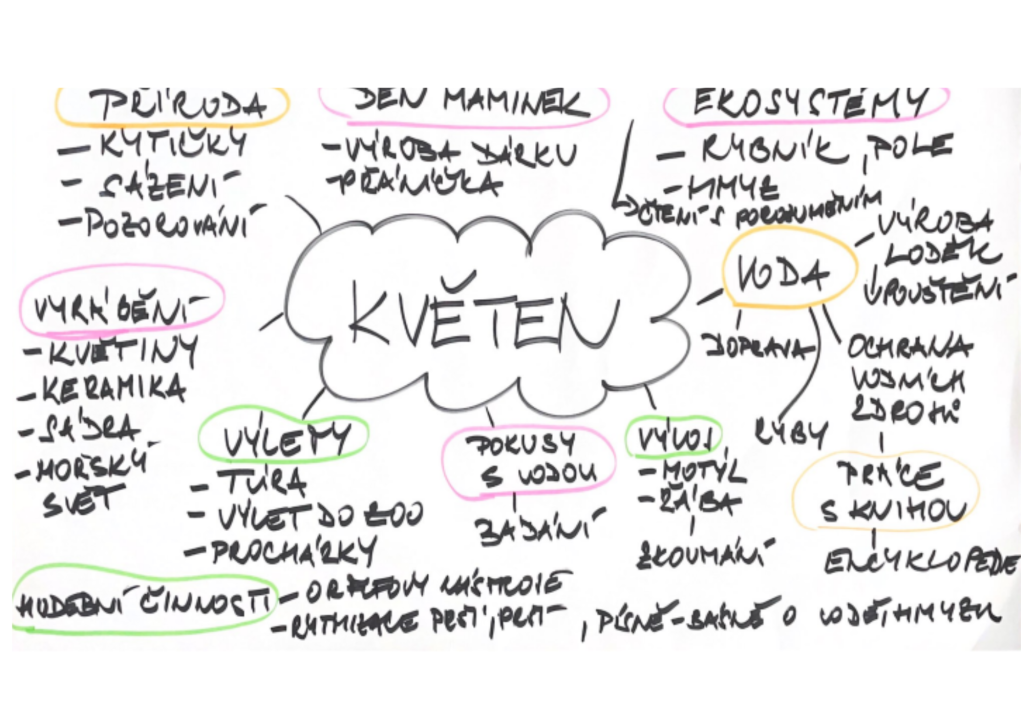 PŘÍRODA
- KYTIČKY
- SÁZENÍ
- POZOROVÁNÍ
DEN MAMINEK
- VÝROBA DÁRKU
- PŘÁNÍČKA
EKOSYSTÉMY
- RYBNÍK, POLE
- HMYZ
ČTENÍ S POROZUMĚNÍM
KVĚTEN
VODA
- VÝROBA
LODĚK
UPOUŠTĚNÍ
DOPRAVA
RYBY
OCHRANA
VODNÍCH
ZDROJŮ
PRÁCE
S KNIHOU
ENCYKLOPEDE
VYRÁBĚNÍ
- KVĚTINY
- KERAMIKA
- SÁDRA
- MOŘSKÝ
SVĚT
VÝLETY
- TÚRA
- VÝLET DO ZOO
- PROCHÁZKY
POKUSY
S VODOU
BÁDÁNÍ
VÝVOJ
- MOTÝL
- ŽÁBA
ZKOUMÁNÍ
HUDEBNÍ ČINNOSTI
- ORFFOVY NÁSTROJE
- RYTMIZACE PRŠÍ, PRŠÍ, PÍSNĚ-BÁSNĚ O VODĚ, HMYZU